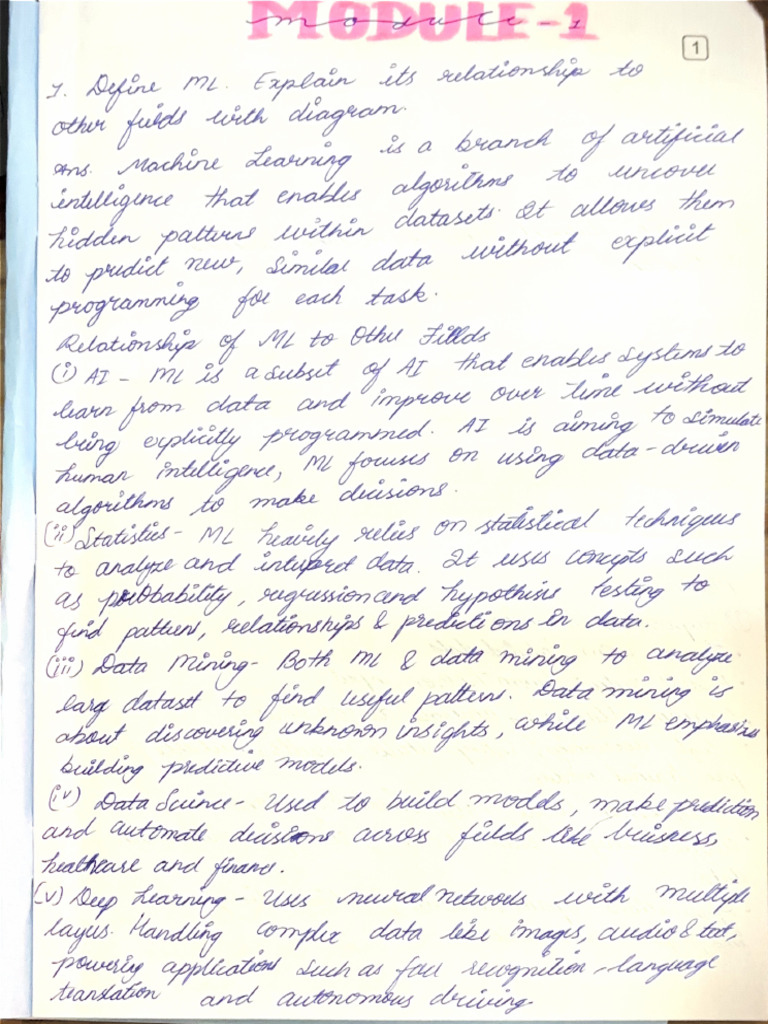 MODULE-1
1
1. Define ML. Explain its relationship to
other fields with diagram.
ans. Machine Learning is a branch of artificial
intelligence that enables algorithms to uncover
hidden patterns within datasets. It allows them
to predict new, similar data without explicit
programming for each task.
Relationship of ML to Other Fields
(i) AI - ML is a subset of AI that enables systems to
learn from data and improve over time without
being explicitly programmed. AI is aiming to simulate
human intelligence, ML focuses on using data-driven
algorithms to make decisions.
(ii) Statistics - ML heavily relies on statistical techniques
to analyze and interpret data. It uses concepts such
as probability, regression and hypothesis testing to
find pattern, relationships & predictions in data.
(iii) Data Mining - Both ML & data mining to analyze
large dataset to find useful pattern. Data mining is
about discovering unknown insights, while ML emphasizes
building predictive models.
(iv) Data Science - Used to build models, make prediction
and automate decisions across fields like business,
healthcare and finance.
(v) Deep Learning - Uses neural networks with multiple
layers. Handling complex data like images, audio & text,
powering applications such as face recognition, language
translation and autonomous driving.